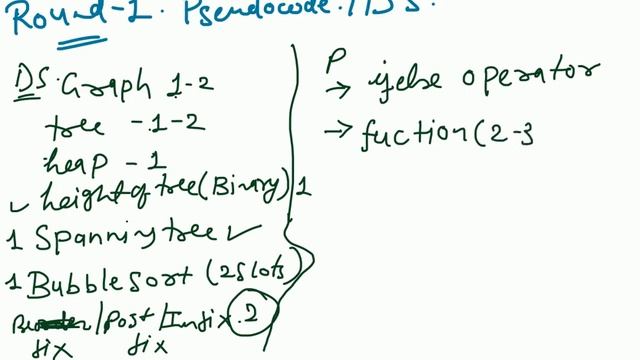 Round-1. Pseudocode. /DS.
DS. Graph 1-2
tree - 1-2
heap - 1
✓ height of tree (Binary) 1
1 Spanning tree ✓
1 Bubble Sort (2 slots)
/Post /Infix. 2
fix fix
P
→ ifelse operator
→ fuction (2-3